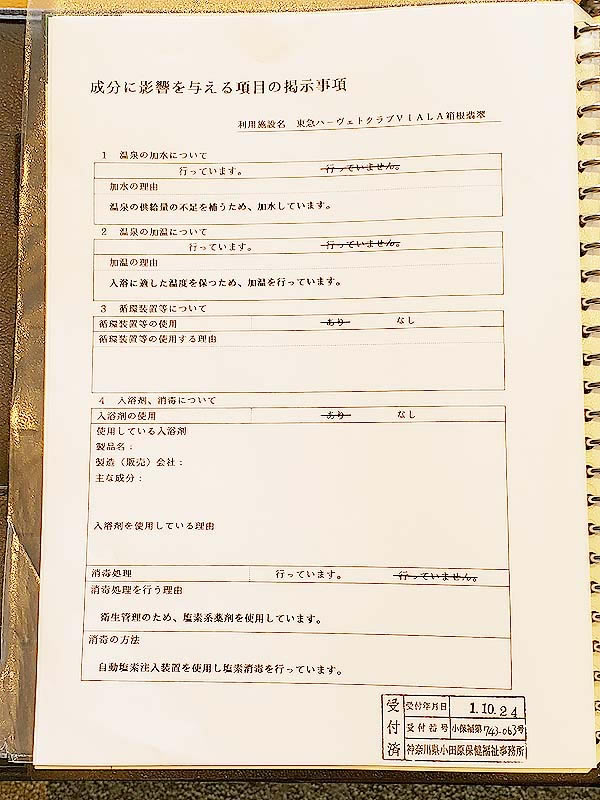 成分に影響を与える項目の掲示事項
利用施設名 東急ハーヴェトクラブVIALA箱根翡翠
1 温泉の加水について
行っています。 行っていません。
加水の理由
温泉の供給量の不足を補うため、加水しています。
2 温泉の加温について
行っています。 行っていません。
加温の理由
入浴に適した温度を保つため、加温を行っています。
3 循環装置等について
循環装置等の使用 あり なし
循環装置等の使用する理由
4 入浴剤、消毒について
入浴剤の使用 あり なし
使用している入浴剤
製品名：
製造（販売）会社：
主な成分：
入浴剤を使用している理由
消毒処理 行っています。 行っていません。
消毒処理を行う理由
衛生管理のため、塩素系薬剤を使用しています。
消毒の方法
自動塩素注入装置を使用し塩素消毒を行っています。
受付済
受付年月日 1.10.24
受付番号 小保福第743-063号
神奈川県小田原保健福祉事務所